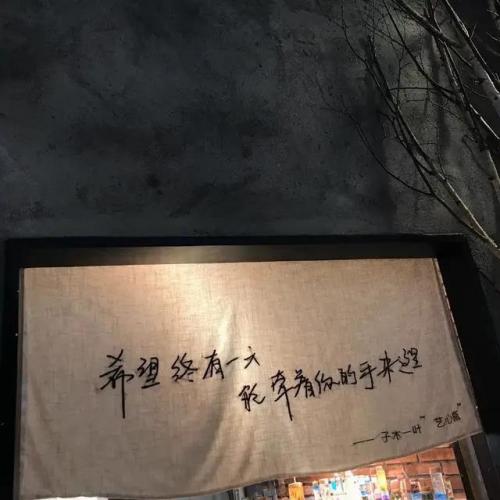 希望终有一天
能牵着你的手来
——子木一叶“艺心